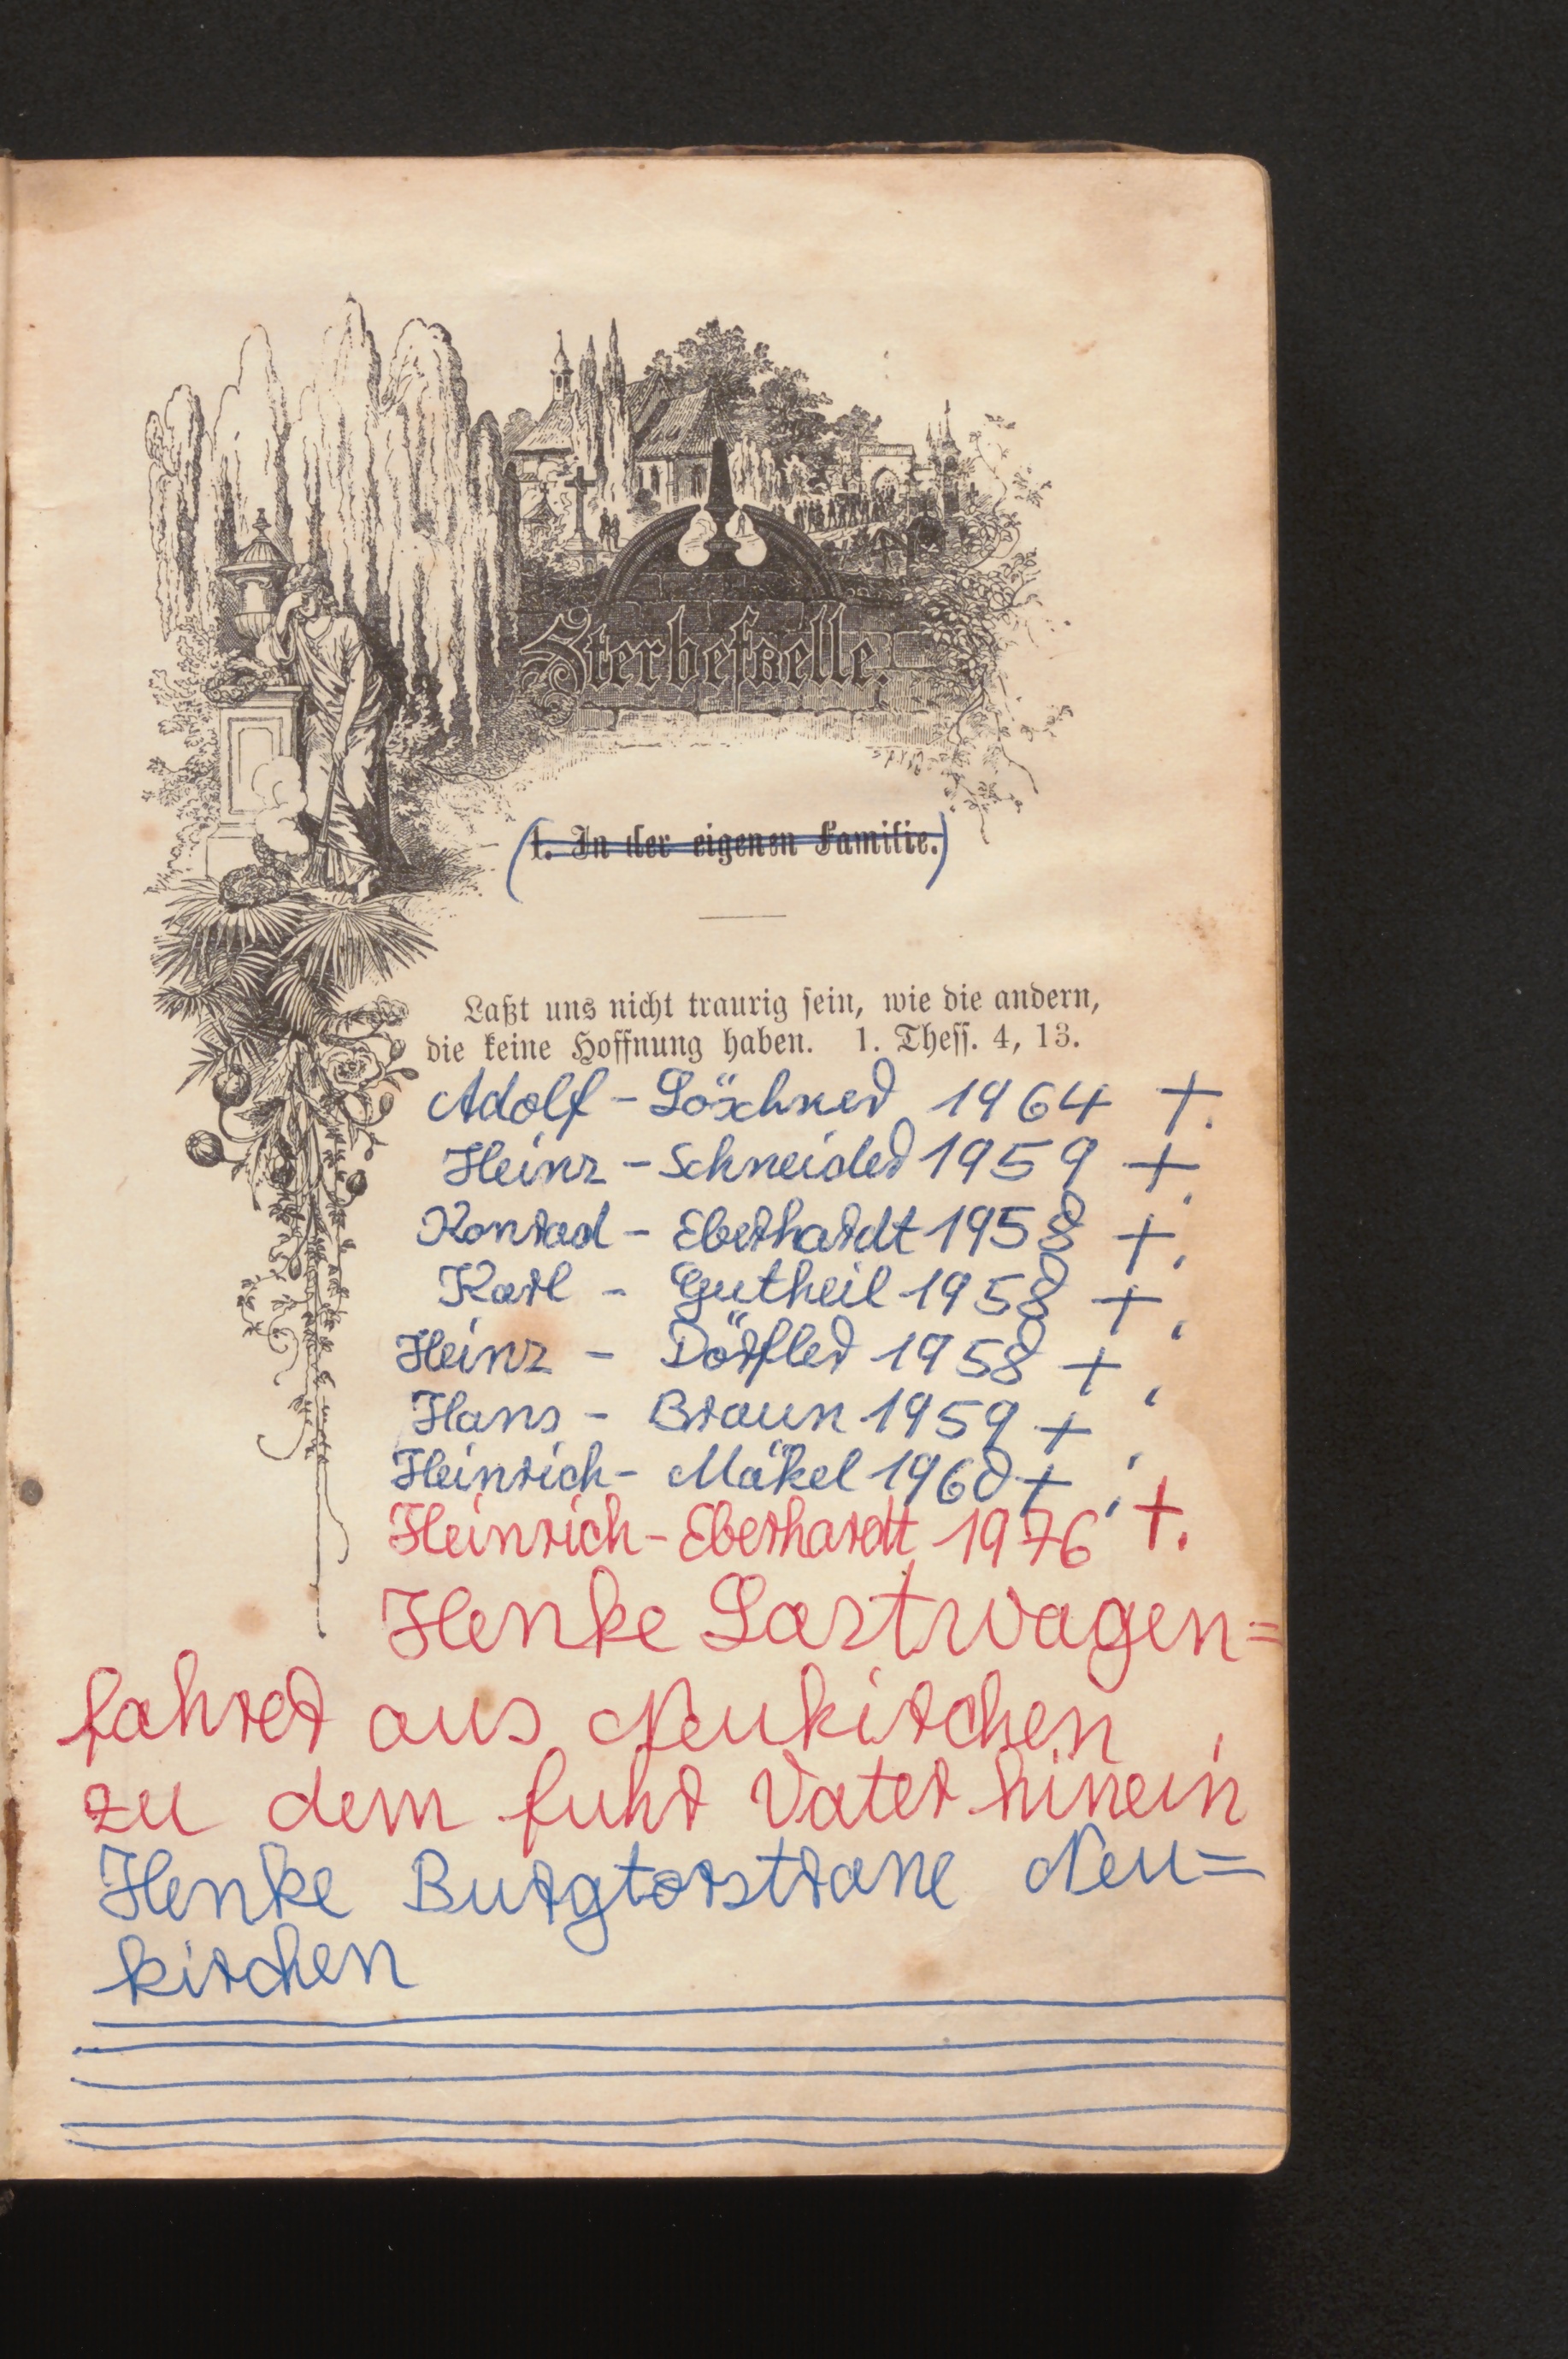 Sterbefaelle.
(1. In der eigenen Familie.)
Laßt uns nicht traurig sein, wie die andern,
die keine Hoffnung haben. 1. Thess. 4, 13.
Adolf - Löschner 1964 +.
Heinz - Schneider 1959 +.
Konrad - Eberhardt 1958 +.
Karl - Gutheil 1958 +.
Heinz - Dörfler 1958 +.
Hans - Braun 1959 +.
Heinrich - Mäkel 1960 +.
Heinrich - Eberhardt 1976 +.
Henke Lastwagen=
fahrer aus Neukirchen,
zu dem fuhr Vater hinein
Henke Burgtorstrane Neu=
kirchen